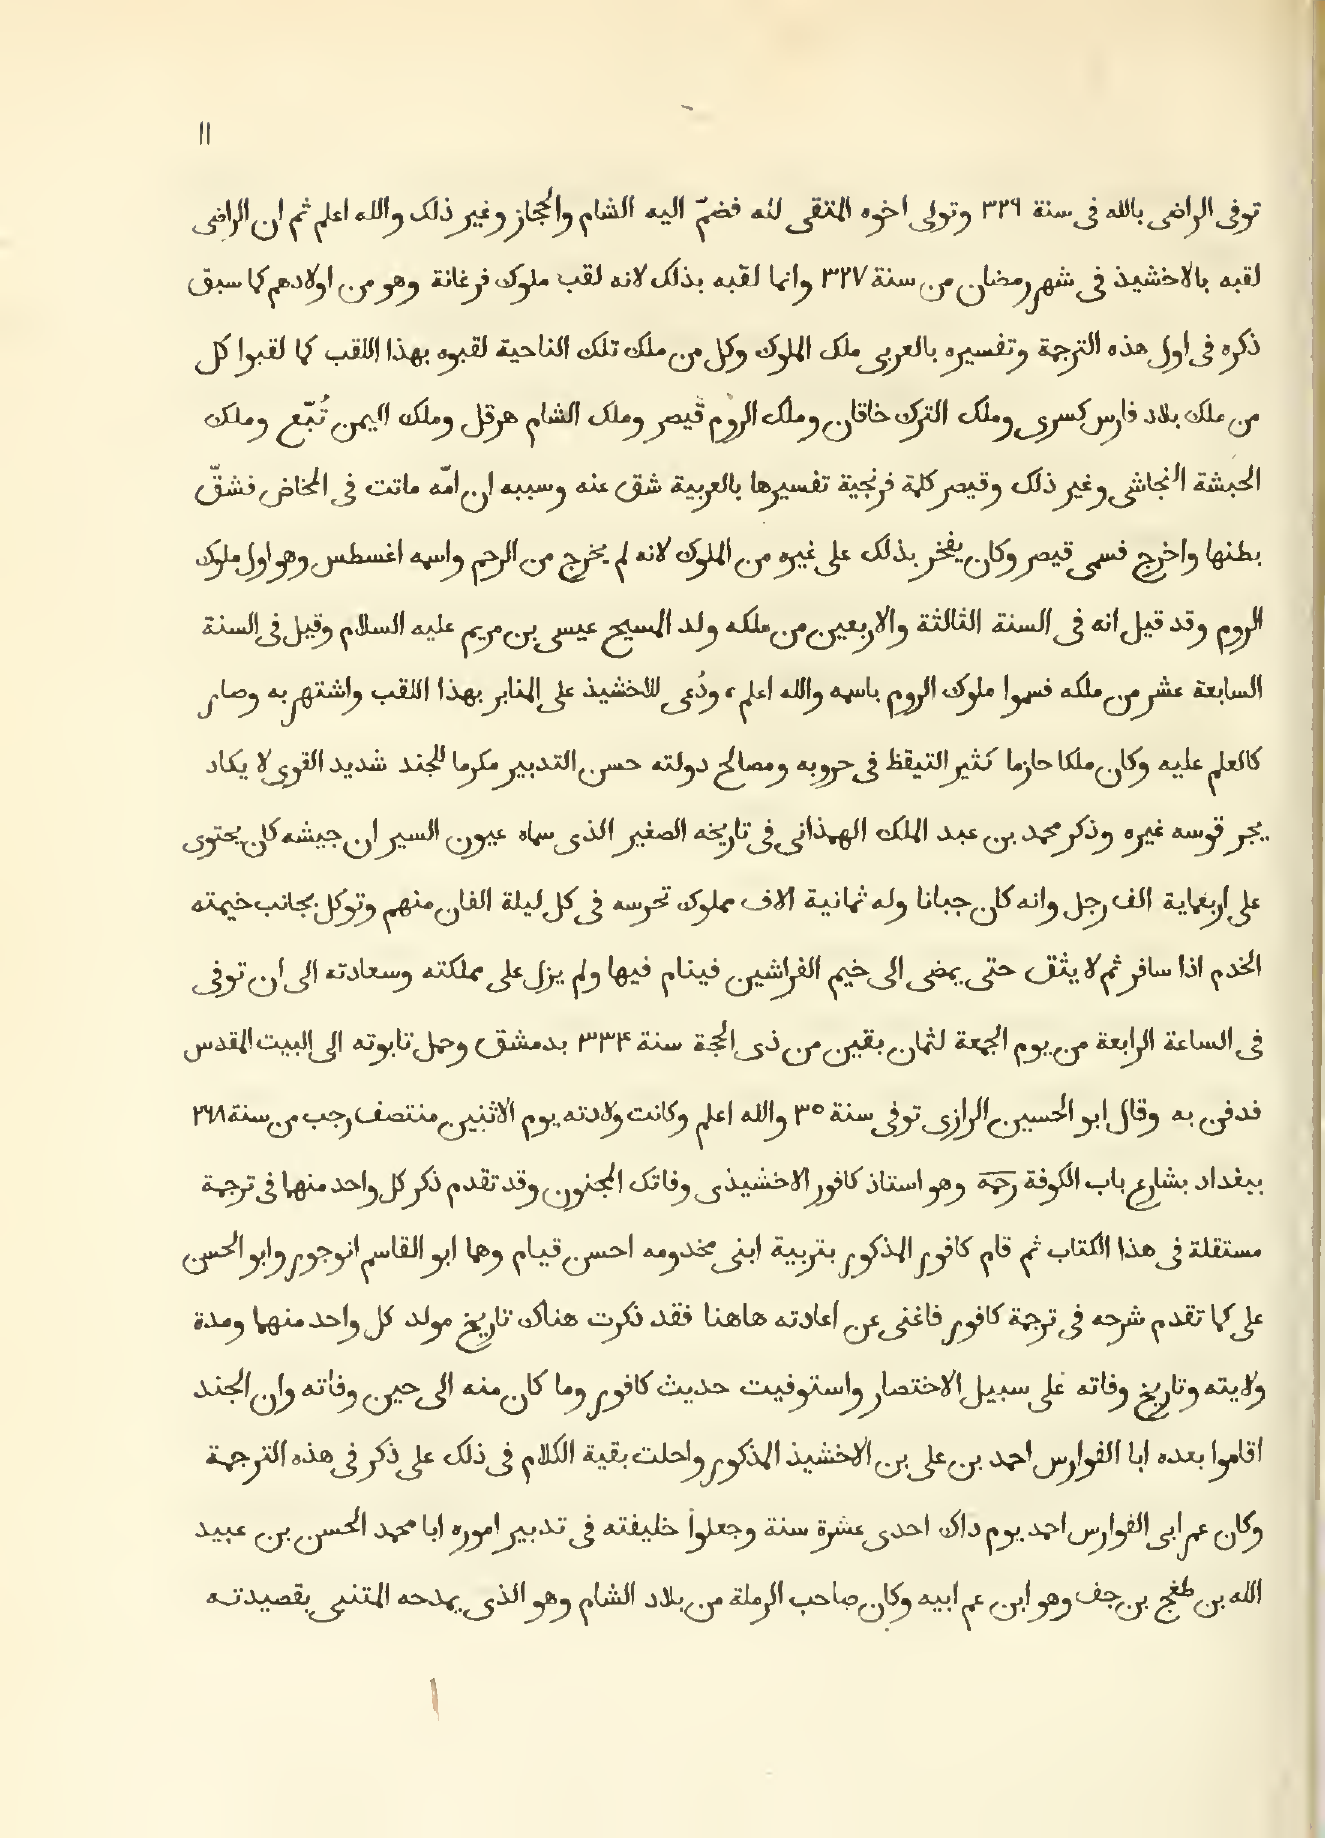 ١١
توفى الراضى بالله فى سنة ٣٢٩ وتولى اخوه المتقى لله فضمّ اليه الشام والحجاز وغير ذلك والله اعلم ثم ان الراضى
لقبه بالاخشيذ فى شهر رمضان من سنة ٣٢٧ وانما لقبه بذلك لانه لقب ملوك فرغانة وهو من اولادهم كما سبق
ذكره فى اول هذه الترجمة وتفسيره بالعربى ملك الملوك وكل من ملك تلك الناحية لقبوه بهذا اللقب كما لقبوا كل
من ملك بلاد فارس كسرى وملك الترك خاقان وملك الروم قيصر وملك الشام هرقل وملك اليمن تُبّع وملك
الحبشة النجاشى وغير ذلك وقيصر كلمة فرنجية تفسيرها بالعربية شق عنه وسببه ان امّه ماتت فى المخاض فشقّ
بطنها واخرج فسمى قيصر وكان يفخر بذلك على غيره من الملوك لانه لم يخرج من الرحم واسمه اغسطس وهو اول ملوك
الروم وقد قيل انه فى السنة الثالثة والاربعين من ملكه ولد المسيح عيسى بن مريم عليه السلام وقيل فى السنة
السابعة عشر من ملكه فسموا ملوك الروم باسمه والله اعلم، ودُعى للاخشيذ على المنابر بهذا اللقب واشتهر به وصار
كالعلم عليه وكان ملكا حازما كثير التيقظ فى حروبه ومصالح دولته حسن التدبير مكرما للجند شديد القوى لا يكاد
يجر قوسه غيره وذكر محمد بن عبد الملك الهمذانى فى تاريخه الصغير الذى سماه عيون السير ان جيشه كان يحتوى
على اربعماية الف رجل وانه كان جبانا وله ثمانية الاف مملوك تحرسه فى كل ليلة الفان منهم وتوكل بجانب خيمته
الخدم اذا سافر ثم لا يثق حتى يمضى الى خيم الفراشين فينام فيها ولم يزل على مملكته وسعادته الى ان توفى
فى الساعة الرابعة من يوم الجمعة لثمان بقين من ذى الحجة سنة ٣٣٤ بدمشق وحمل تابوته الى البيت المقدس
فدفن به وقال ابو الحسين الرازى توفى سنة ٣٥ والله اعلم وكانت ولادته يوم الاثنين منتصف رجب من سنة ٢٦٨
ببغداد بشارع باب الكوفة رحمه وهو استاذ كافور الاخشيذى وفاتك المجنون وقد تقدم ذكر كل واحد منهما فى ترجمة
مستقلة فى هذا الكتاب ثم قام كافور المذكور بتربية ابنى مخدومه احسن قيام وهما ابو القاسم انوجور وابو الحسن
على كما تقدم شرحه فى ترجمة كافور فاغنى عن اعادته هاهنا فقد ذكرت هناك تاريخ مولد كل واحد منهما ومدة
ولايته وتاريخ وفاته على سبيل الاختصار واستوفيت حديث كافور وما كان منه الى حين وفاته وان الجند
اقاموا بعده ابا الفوارس احمد بن على بن الاخشيذ المذكور واحلت بقية الكلام فى ذلك على ذكر فى هذه الترجمة
وكان عمر ابى الفوارس احمد يوم داك احدى عشرة سنة وجعلوا خليفته فى تدبير اموره ابا محمد الحسن بن عبيد
الله بن طغج بن جف وهو ابن عم ابيه وكان صاحب الرملة من بلاد الشام وهو الذى يمدحه المتنبى بقصيدته